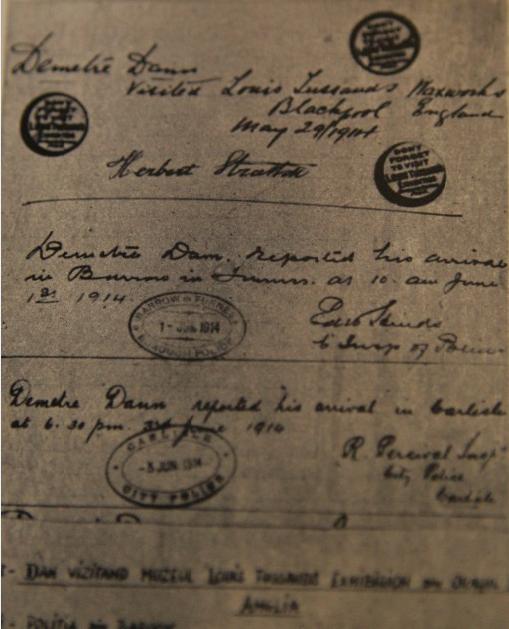 DON'T
FORGET
TO VISIT
Demetre Dann
Visited Louis Tussaud's Waxworks
Blackpool England
May 29/1914
DON'T
FORGET
TO VISIT
Herbert
Demetre Dan. reported his arrival
in Barrow in Furness. at 10. am June
1st 1914.
BARROW IN FURNESS
1 - JUN 1914
BOROUGH POLICE
Insp of Police
Demetre Dann reported his arrival in Carlisle
at 6. 30 pm. 3rd June 1914
CARLISLE
- 3 JUN 1914
CITY POLICE
R. Percival Insp
City Police
Carlisle
- DAN VIZITAND MUZEUL LOUIS TUSSAUDS EXHIBITION DIN
ANGLIA
- POLITIA DIN BARROW